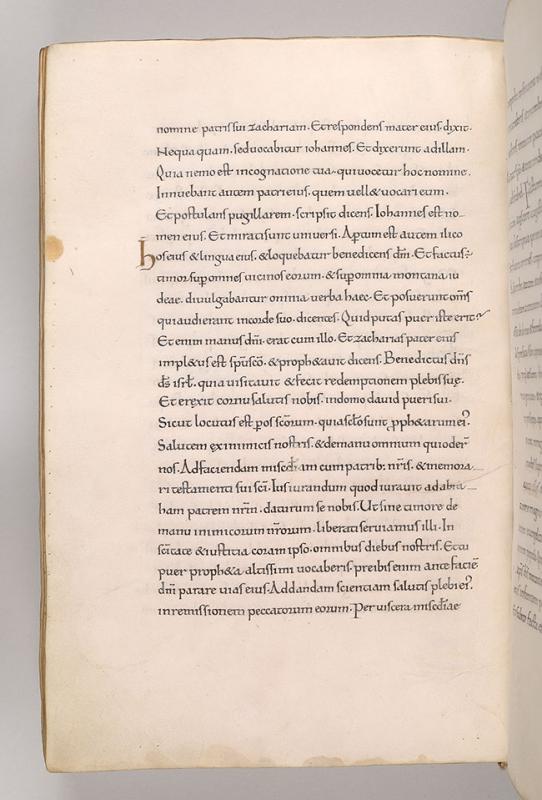 nomine patris sui zachariam. Et respondens mater eius. dixit.
Nequaquam. sed vocabitur iohannes. Et dixerunt ad illam.
Quia nemo est in cognatione tua. qui vocetur hoc nomine.
Innuebant autem patri eius. quem vell& vocari eum.
Et postulans pugillarem. scripsit dicens. Iohannes est no-
men eius. Et mirati sunt universi. Apertum est autem ilico
hos eius & lingua eius. & loquebatur benedicens dm̄. Et factus:
timor sup omnes uicinos eorum. & sup omnia montana iu
deae. divulgabantur omnia verba haec. Et posuerunt om̄s
qui audierant in corde suo. dicentes. Quid putas puer iste erit?
Et enim manus dn̄i. erat cum illo. Et zacharias pater eius
impl&us est sp̄u sc̄o. & proph&avit dicens. Benedictus dn̄s
ds̄ isrl̄. quia visitavit & fecit redemptionem plebis suę.
Et erexit cornu salutis nobis. in domo david pueri sui.
Sicut locutus est. p os sc̄orum. qui a sc̄lo sunt. pph&arum ei'.
Salutem ex inimicis nostris. & de manu omnium qui oder̄
nos. Ad faciendam misc̄diam cum patrib; nr̄is. & memora-
ri testamenti sui sc̄i. Ius iurandum quod iuravit ad abra-
ham patrem nr̄m. daturum se nobis. Ut sine timore de
manu inimicorum nr̄orum. liberati serviamus illi. In
sc̄itate & iustitia coram ipso. omnibus diebus nostris. Et tu
puer proph&a altissimi vocaberis. preibis enim ante faciē
dn̄i parare vias eius. Ad dandam scientiam salutis plebi ei'.
in remissionem peccatorum eorum. Per viscera misc̄diae